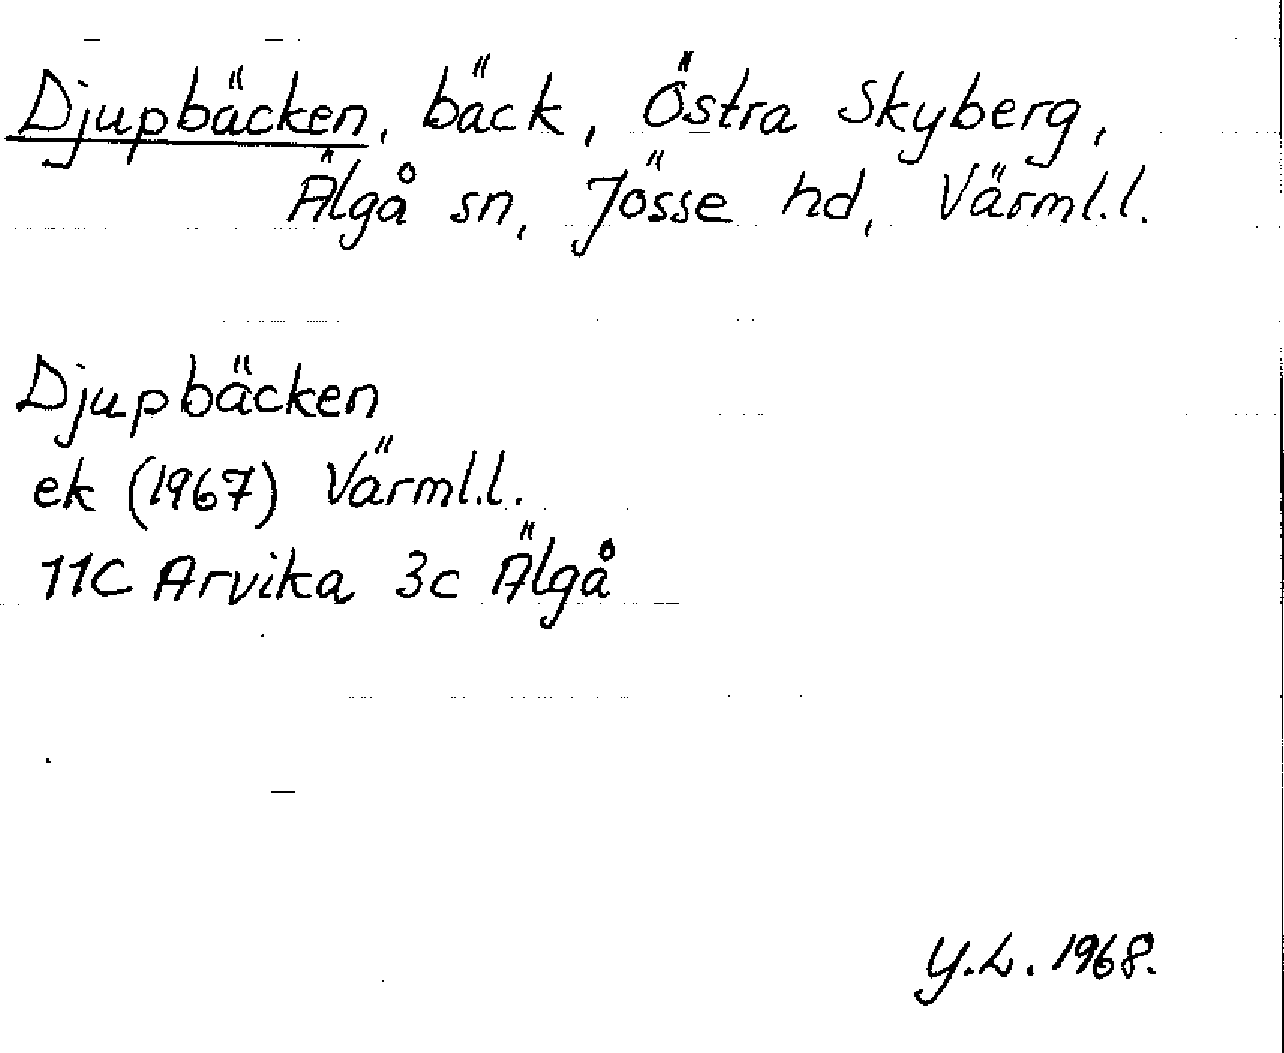 Djupbäcken, bäck, Östra Skyberg,
Älgå sn, Jösse hd, Värml.l.
Djupbäcken
ek (1967) Värml.l.
11C Arvika 3c Älgå
Y.L. 1968.